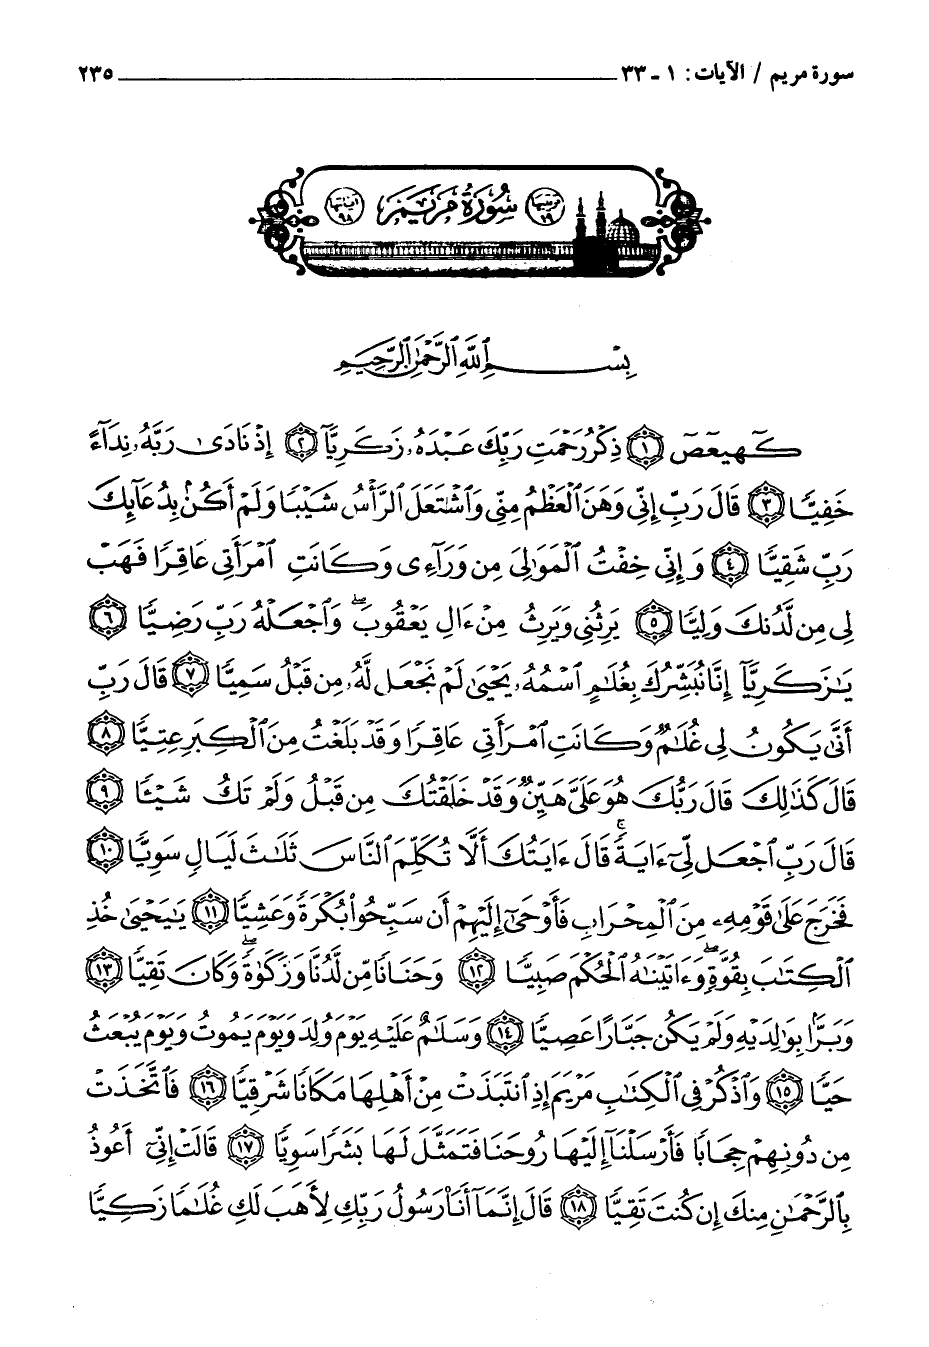 سورة مريم / الآيات: ١ - ٣٣ ٢٣٥
ترتيبها ١٩ سُورَةُ مَرْيَمَ آياتها ٩٨
بِسْمِ ٱللَّهِ ٱلرَّحْمَٰنِ ٱلرَّحِيمِ
كٓهيعٓصٓ ﴿١﴾ ذِكْرُ رَحْمَتِ رَبِّكَ عَبْدَهُۥ زَكَرِيَّآ ﴿٢﴾ إِذْ نَادَىٰ رَبَّهُۥ نِدَآءً
خَفِيًّا ﴿٣﴾ قَالَ رَبِّ إِنِّي وَهَنَ ٱلْعَظْمُ مِنِّي وَٱشْتَعَلَ ٱلرَّأْسُ شَيْبًا وَلَمْ أَكُنۢ بِدُعَآئِكَ
رَبِّ شَقِيًّا ﴿٤﴾ وَإِنِّي خِفْتُ ٱلْمَوَٰلِىَ مِن وَرَآءِى وَكَانَتِ ٱمْرَأَتِي عَاقِرًا فَهَبْ
لِي مِن لَّدُنكَ وَلِيًّا ﴿٥﴾ يَرِثُنِي وَيَرِثُ مِنْ ءَالِ يَعْقُوبَ ۖ وَٱجْعَلْهُ رَبِّ رَضِيًّا ﴿٦﴾
يَٰزَكَرِيَّآ إِنَّا نُبَشِّرُكَ بِغُلَٰمٍ ٱسْمُهُۥ يَحْيَىٰ لَمْ نَجْعَل لَّهُۥ مِن قَبْلُ سَمِيًّا ﴿٧﴾ قَالَ رَبِّ
أَنَّىٰ يَكُونُ لِي غُلَٰمٌ وَكَانَتِ ٱمْرَأَتِي عَاقِرًا وَقَدْ بَلَغْتُ مِنَ ٱلْكِبَرِ عِتِيًّا ﴿٨﴾
قَالَ كَذَٰلِكَ قَالَ رَبُّكَ هُوَ عَلَىَّ هَيِّنٌ وَقَدْ خَلَقْتُكَ مِن قَبْلُ وَلَمْ تَكُ شَيْـًٔا ﴿٩﴾
قَالَ رَبِّ ٱجْعَل لِّيٓ ءَايَةً ۚ قَالَ ءَايَتُكَ أَلَّا تُكَلِّمَ ٱلنَّاسَ ثَلَٰثَ لَيَالٍ سَوِيًّا ﴿١٠﴾
فَخَرَجَ عَلَىٰ قَوْمِهِۦ مِنَ ٱلْمِحْرَابِ فَأَوْحَىٰٓ إِلَيْهِمْ أَن سَبِّحُوا۟ بُكْرَةً وَعَشِيًّا ﴿١١﴾ يَٰيَحْيَىٰ خُذِ
ٱلْكِتَٰبَ بِقُوَّةٍ ۖ وَءَاتَيْنَٰهُ ٱلْحُكْمَ صَبِيًّا ﴿١٢﴾ وَحَنَانًا مِّن لَّدُنَّا وَزَكَوٰةً ۖ وَكَانَ تَقِيًّا ﴿١٣﴾
وَبَرًّۢا بِوَٰلِدَيْهِ وَلَمْ يَكُن جَبَّارًا عَصِيًّا ﴿١٤﴾ وَسَلَٰمٌ عَلَيْهِ يَوْمَ وُلِدَ وَيَوْمَ يَمُوتُ وَيَوْمَ يُبْعَثُ
حَيًّا ﴿١٥﴾ وَٱذْكُرْ فِي ٱلْكِتَٰبِ مَرْيَمَ إِذِ ٱنتَبَذَتْ مِنْ أَهْلِهَا مَكَانًا شَرْقِيًّا ﴿١٦﴾ فَٱتَّخَذَتْ
مِن دُونِهِمْ حِجَابًا فَأَرْسَلْنَآ إِلَيْهَا رُوحَنَا فَتَمَثَّلَ لَهَا بَشَرًا سَوِيًّا ﴿١٧﴾ قَالَتْ إِنِّيٓ أَعُوذُ
بِٱلرَّحْمَٰنِ مِنكَ إِن كُنتَ تَقِيًّا ﴿١٨﴾ قَالَ إِنَّمَآ أَنَا۠ رَسُولُ رَبِّكِ لِأَهَبَ لَكِ غُلَٰمًا زَكِيًّا